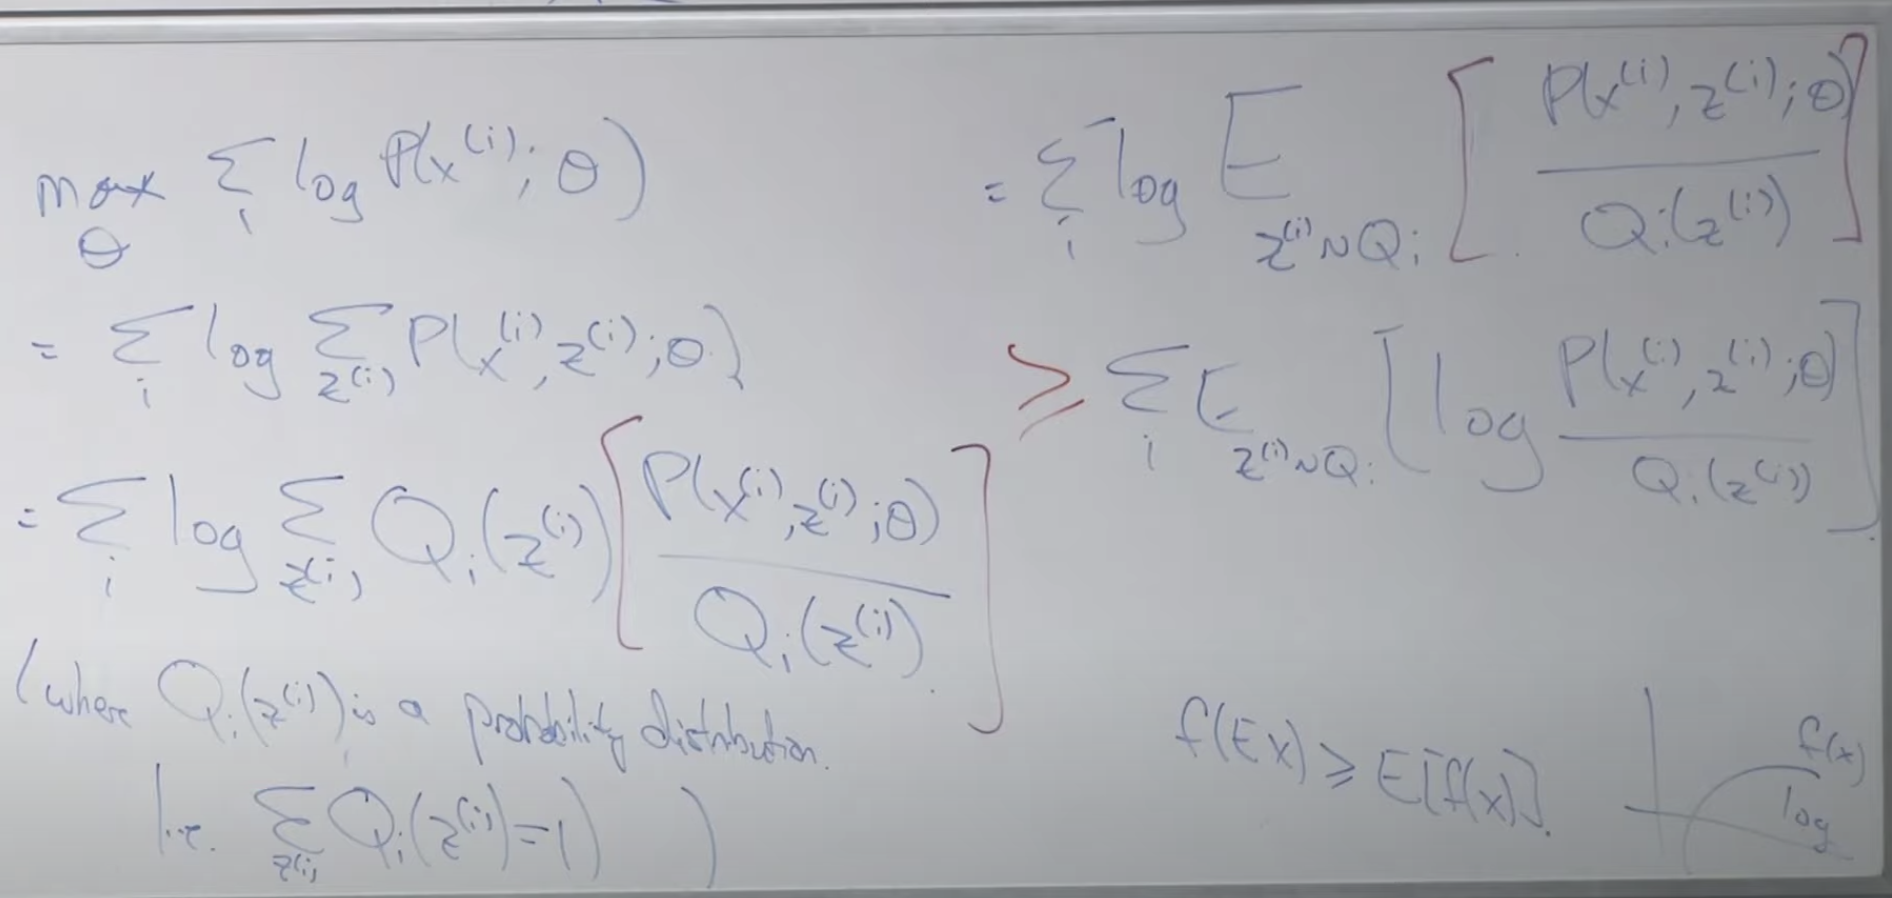 max_θ Σ_i log P(x^(i); θ)
= Σ_i log Σ_z^(i) P(x^(i), z^(i); θ)
= Σ_i log Σ_z^(i) Q_i(z^(i)) [ P(x^(i), z^(i); θ) / Q_i(z^(i)) ]
(where Q_i(z^(i)) is a probability distribution.
I.e. Σ_z^(i) Q_i(z^(i)) = 1) )
= Σ_i log E_z^(i)~Q_i [ P(x^(i), z^(i); θ) / Q_i(z^(i)) ]
≥ Σ_i E_z^(i)~Q_i [ log P(x^(i), z^(i); θ) / Q_i(z^(i)) ]
f(EX) ≥ E[f(x)].
f(x)
log